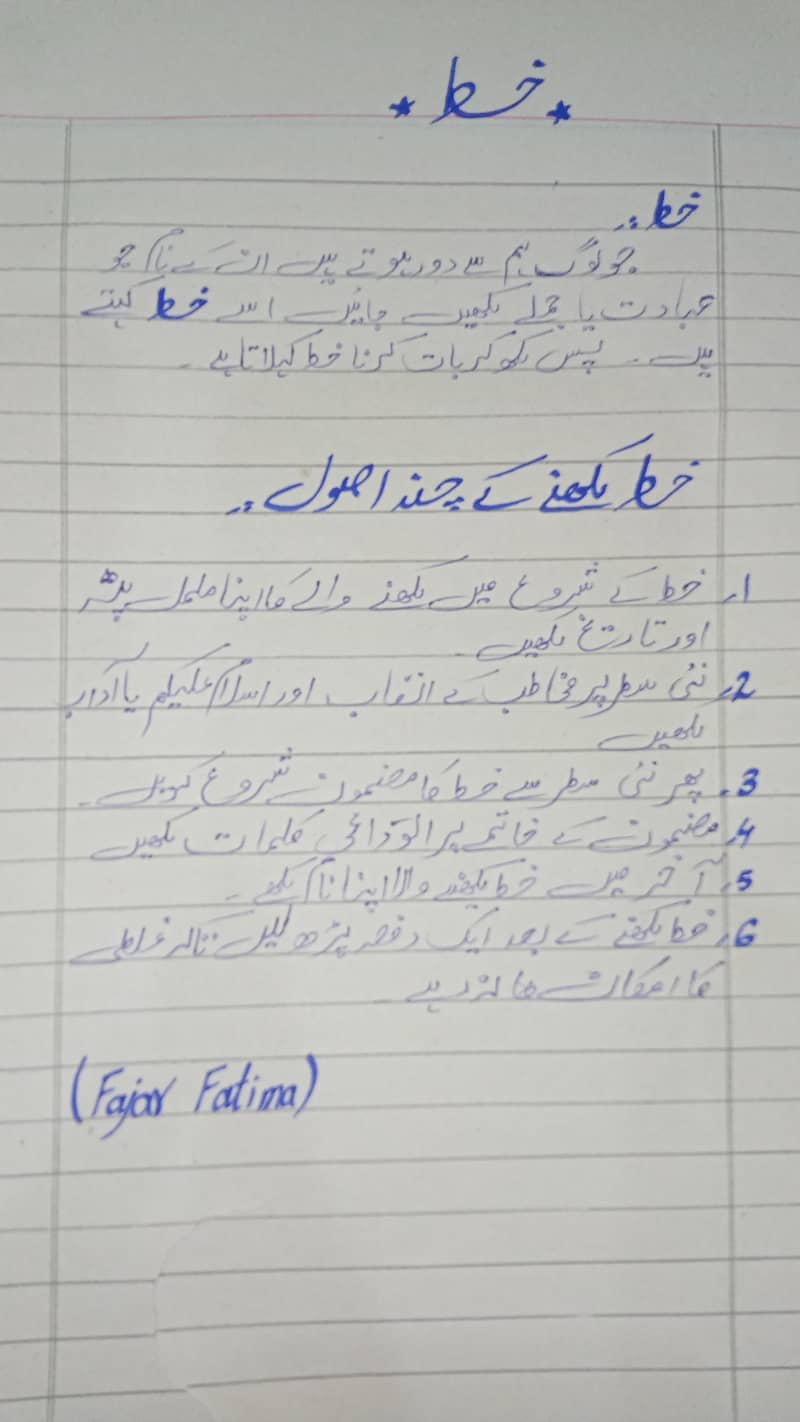 * خط *
خط :۔
جو لوگ ہم سے دور ہوتے ہیں ان کے نام جو
عبادت یا جملے لکھیں جائیں اسے خط کہتے
ہیں ۔ پس لکھ کر بات کرنا خط کہلاتا ہے ۔
خط لکھنے کے چند اصول :۔
1۔ خط کے شروع میں لکھنے والے کا اپنا مکمل پتہ
اور تاریخ لکھیں ۔
2۔ نئی سطر پر مخاطب کے القاب اور اسلام علیکم یا آداب
لکھیں
3۔ پھر نئی سطر سے خط کا مضمون شروع کریں ۔
4۔ مضمون کے خاتمہ پر الوداعی کلمات لکھیں
5۔ آخر میں خط لکھنے والا اپنا نام لکھے ۔
6۔ خط لکھنے کے بعد ایک دفعہ پڑھ لیں تاکہ غلطی
کا امکان نہ رہے ۔
(Fajar Fatima)